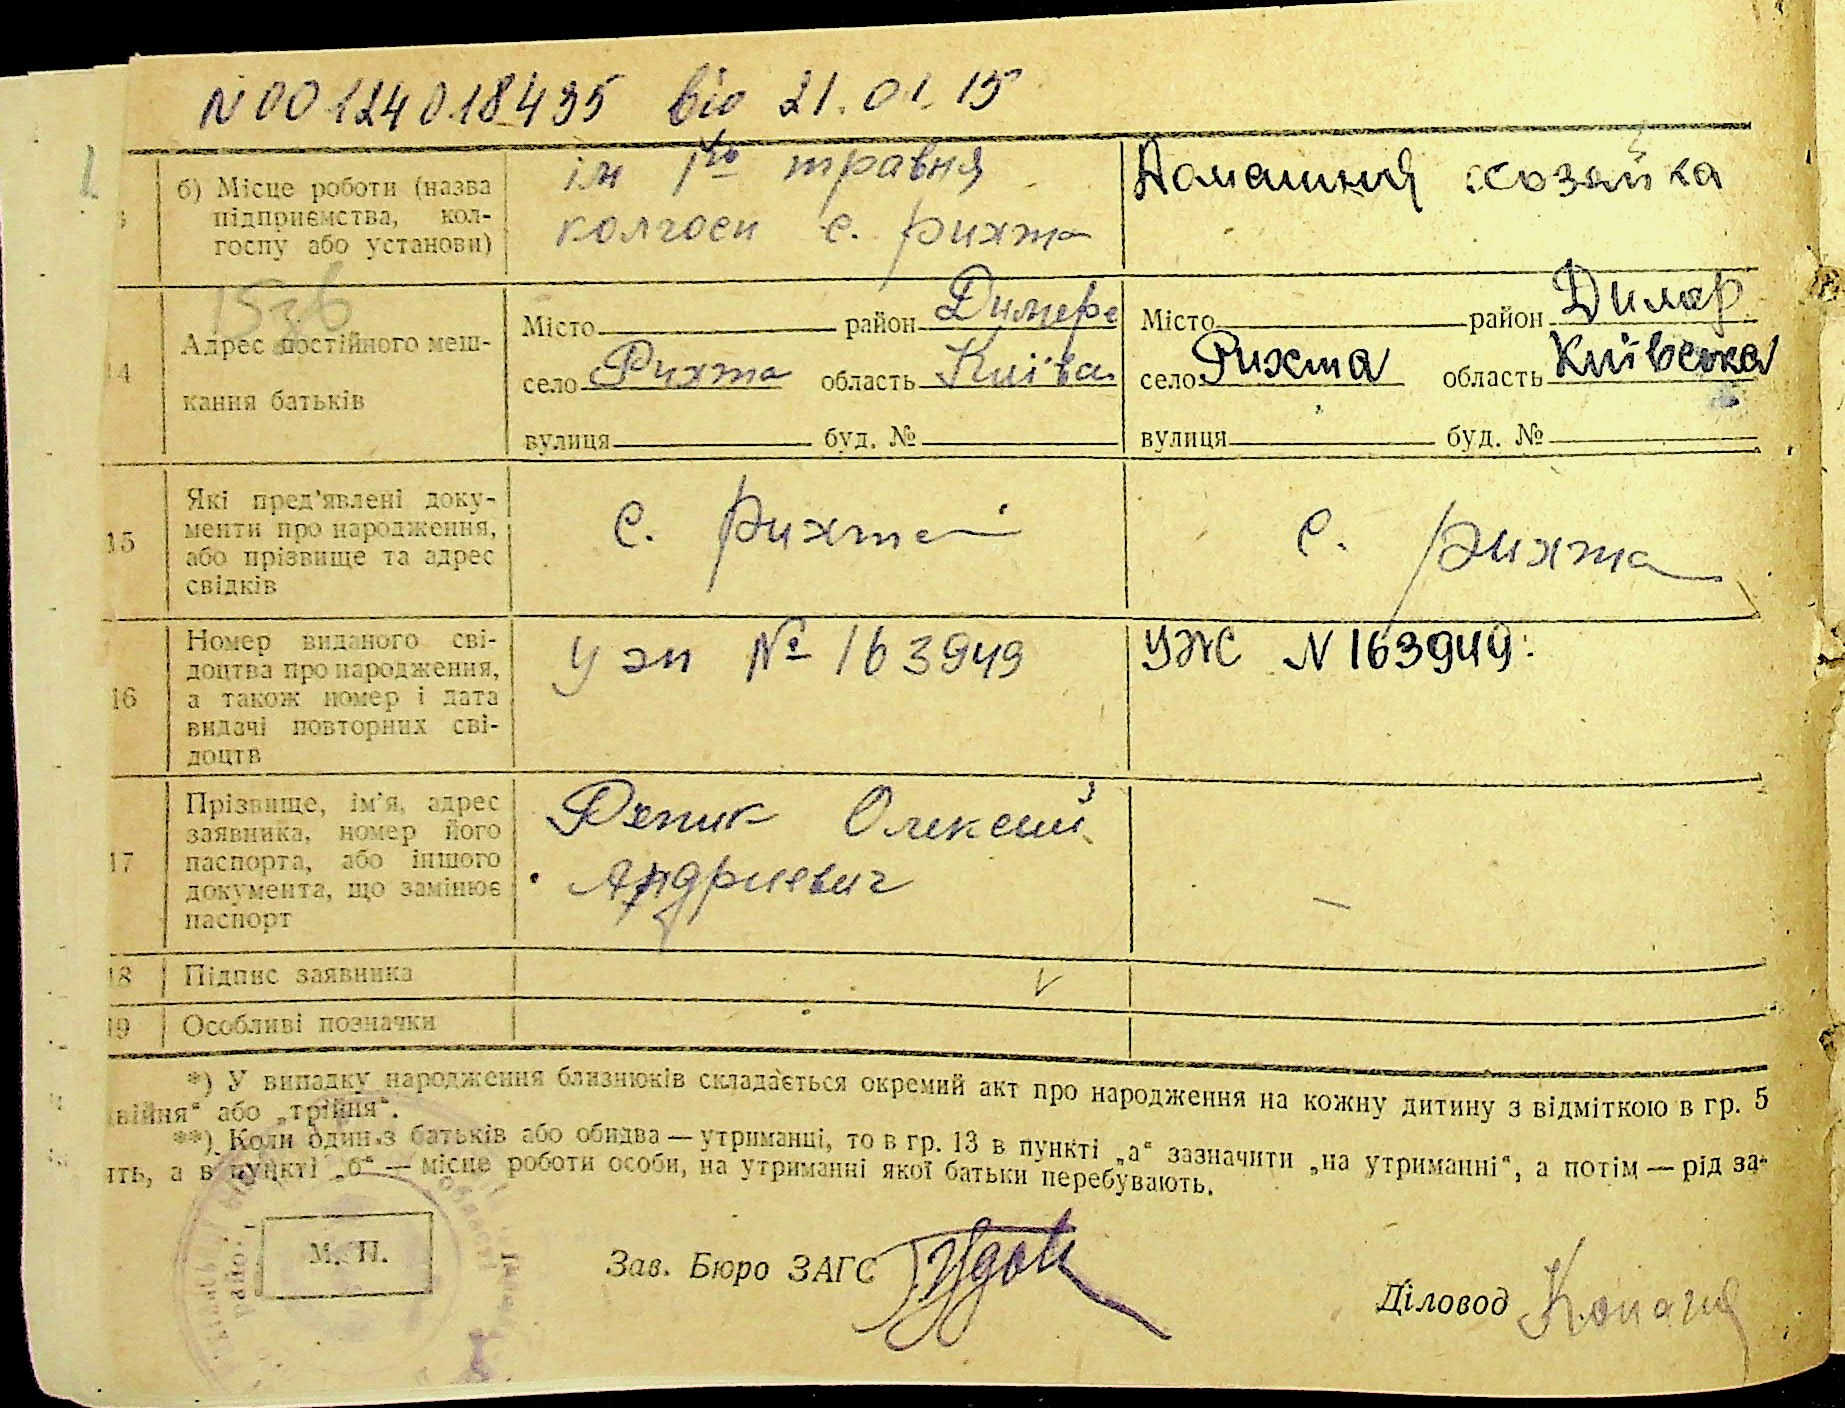 N 00124018435 від 21.01.15
б) Місце роботи (назва підприємства, колгоспу або установи)
ім 1го травня
колгосп с. Рихта
Домашня хозяйка
14
Адрес постійного меш-
кання батьків
Місто район Димере
село Рихта область Київа
вулиця буд. №
Місто район Димер
село Рихта область Київська
вулиця буд. №
15
Які пред'явлені доку-
менти про народження,
або прізвище та адрес
свідків
с. Рихта
с. Рихта
16
Номер виданого сві-
доцтва про народження,
а також номер і дата
видачі повторних сві-
доцтв
№ 163949
УЖ N 163949
17
Прізвище, ім'я, адрес
заявника, номер його
паспорта, або іншого
документа, що замінює
паспорт
Олексий
Андриевич
18
Підпис заявника
19
Особливі позначки
*) У випадку народження близнюків складається окремий акт про народження на кожну дитину з відміткою в гр. 5
війня" або „трійня".
**) Коли один з батьків або обидва — утриманці, то в гр. 13 в пункті „а" зазначити „на утриманні", а потім — рід за-
ять, а в пункті „б" — місце роботи особи, на утриманні якої батьки перебувають.
М. П.
Зав. Бюро ЗАГС
Діловод